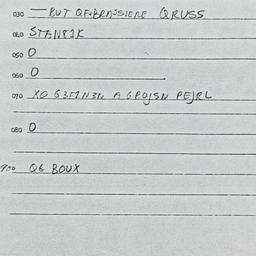 030 — BUT QF+BRASSIERE QRUSS
040 STAN81K
050 0
060 0
070 XO G3EIN3N A GPOJSN PEJRL
080 0
900 Q6 BOUX